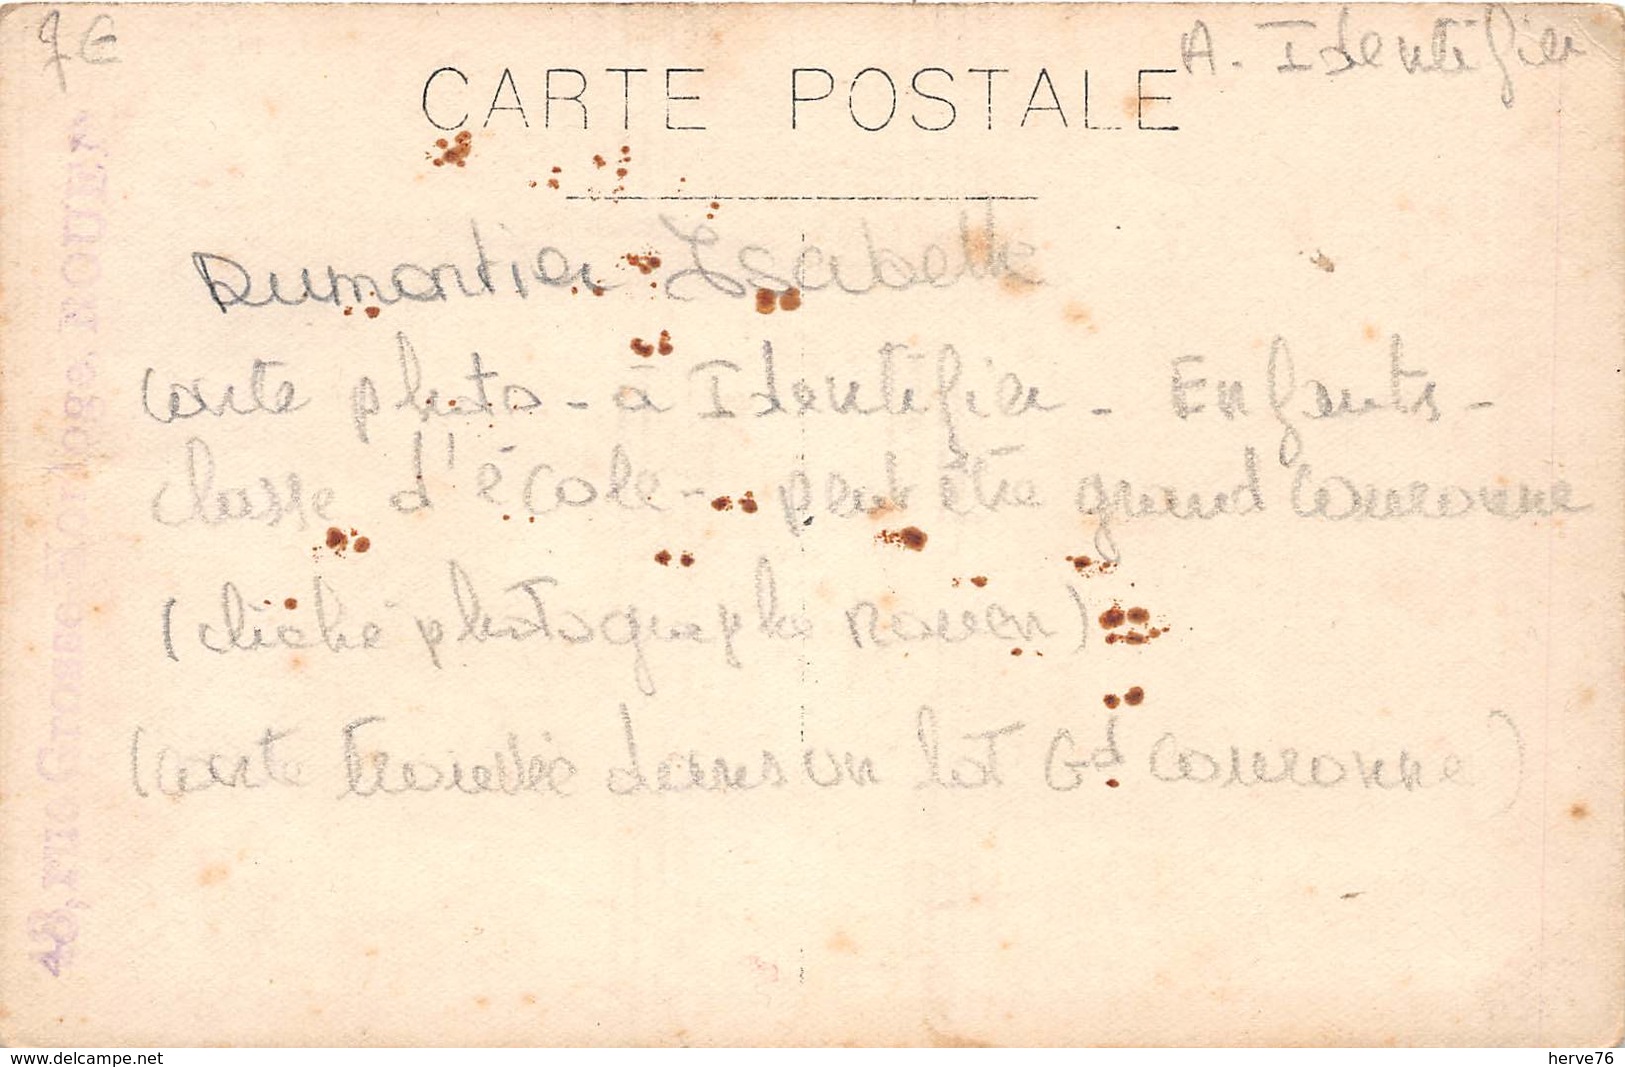 7€
A. Identifier
CARTE POSTALE
Dumontier Isabelle
carte photo - à Identifier - Enfants -
classe d'école - peut être grand Couronne
(cliché photographe Rouen)
(carte trouvée dans un lot Gd Couronne)
48, Rue Grosse-Horloge, ROUEN
www.delcampe.net
herve76